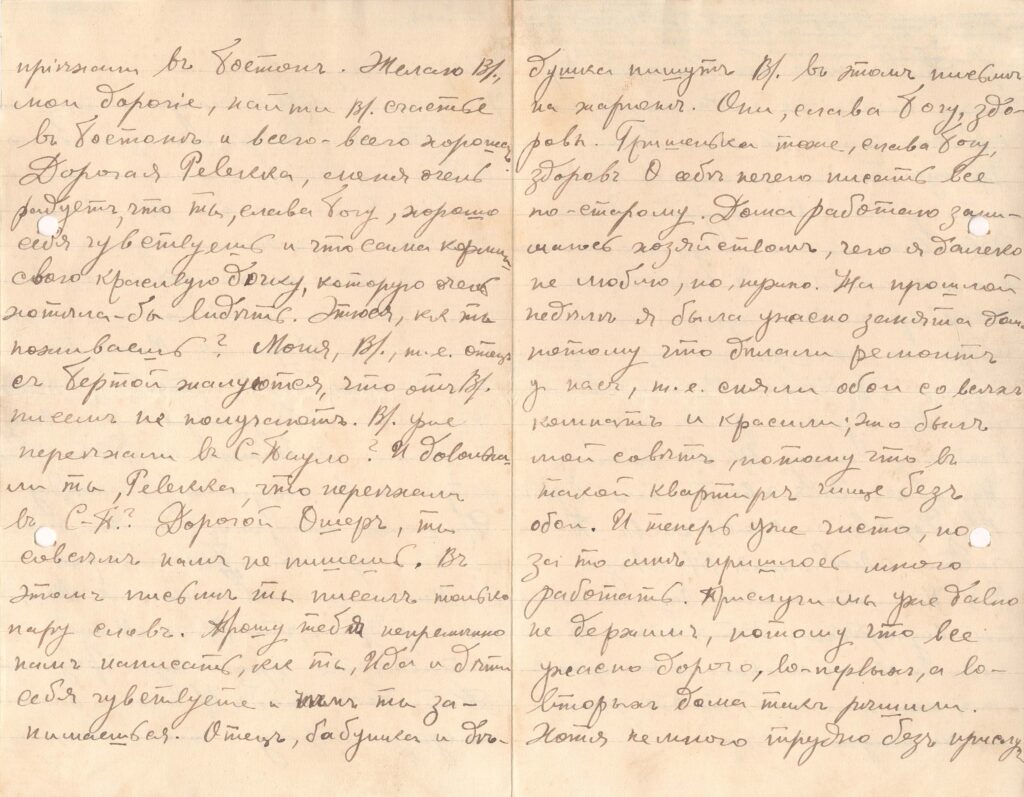 пріѣхали въ Бостонъ. Желаю В/.,
мои дорогіе, найти В/. счастье
въ Бостонѣ и всего-всего хорошаго
Дорогая Ревекка, меня очень
радуетъ, что ты, слава Богу, хорошо
себя чувствуешь и что сама кормишь
свою красивую дочку, которую очень
хотѣла-бы видѣть. Этюся, как ты
поживаешь? Моня, В/., т.е. отецъ
съ Бертой жалуются, что отъ В/.
писемъ не получаютъ. В/. уже
переѣхали въ С-Пауло? И довольна
ли ты, Ревекка, что переѣхали
въ С-П.? Дорогой Ошеръ, ты
совсѣмъ намъ не пишешь. Въ
этомъ письмѣ ты писалъ только
пару словъ. Прошу тебя непремѣнно
намъ написать, как ты, Ида и дѣти
себя чувствуете и чѣмъ ты за-
нимаешься. Отецъ, бабушка и дѣ-
душка пишутъ В/. въ этомъ письмѣ
на жаргонѣ. Они, слава Богу, здо-
ровы. Гришенька тоже, слава Богу,
здоровъ О себѣ нечего писать все
по-старому. Дома работаю зани-
маюсь хозяйствомъ, чего я далеко
не люблю, но, нужно. На прошлой
недѣлѣ я была ужасно занята дом.
потому что дѣлали ремонтъ
у насъ, т.е. сняли обои со всѣхъ
комнатъ и красили; это былъ
мой совѣтъ, потому что въ
такой квартирѣ чище безъ
обои. И теперь уже чисто, но
за то мнѣ пришлось много
работать. Прислуги мы уже давно
не держимъ, потому что все
ужасно дорого, во-первыхъ, а во-
вторыхъ дома такъ рѣшили.
Хотя немного трудно безъ прислу-